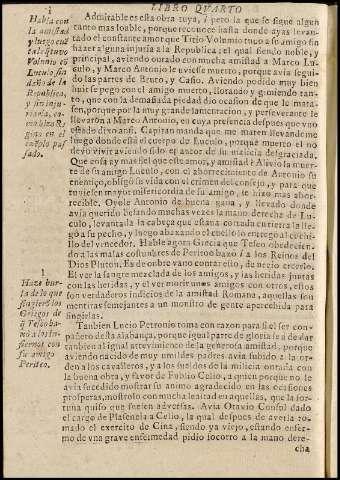 LIBRO QVARTO
1
Habla con
la amistad
y luego cuẽ
ta lo q̃ tuvo
Volnnio cõ
Luculo, sin
daño de la
Republica,
y sin inju-
riarla, co-
gino en el
cuẽto pas
sado.
Admirable es esta obra tuya, i pero la que se sigue algun
tanto mas loable, porque reconoce hasta donde ayas levan-
tado el constante amor que Titio Volnnio tuvo a su amigo sin
hazer alguna injuria a la Republica: el qual siendo noble, y
principal, aviendo ourado con mucha amistad a Marco Lu-
culo, y Marco Antonio le uviesse muerto, porque avia segui-
do las partes de Bruto, y Casio. Aviendo podido muy bien
huir se pego con el amigo muerto, llorando y gimiendo tan-
to, que con la demasiada piedad dio ocasion de que le mata-
sen, porque por la muy grande lamentacion, y perseverante le
llevarõn a Marco Antonio, en cuya presencia despues que vno
estado dixo ansi. Capitan manda que me maten llevandome
luego donde está el cuerpo de Luculo, porque muerto el no
devo vivir aviendo sido autor de su milicia desgraciada.
Que cosa ay mas fiel que este amor, y amistad? Alivio la muer-
te de su amigo Luculo, con el aborrecimiento de Antonio su
enemigo, obligó su vida con el crimen del consejo, y para que
tuviesen mayor misericordia de su amigo, se hizo mas abor-
recible. Oyole Antonio de buena gana, y llevado donde
avia querido besando muchas vezes la mano derecha de Lu-
culo, levanta la cabeça que estava cortada en tierra la lle-
gó a su pecho, y luego abaxando el cuello lo entregó al cuchi-
llo del vencedor. Hable agora Grecia que Teseo obedecien-
do a las malas costumbres de Peritoo baxó i a los Reinos del
Dios Pluton. Es de cobre vano contar ello, de necio creerlo.
El ver la sangre mezclada de los amigos, y las heridas juntas
con las heridas, y el ver morir unos amigos con otros, estos
son verdaderos indicios de la amistad Romana, aquellas son
mentiras semejantes a un monstro de gente apercebida para
fingirlas.
1
Haze bur-
la de lo que
fingierõ los
Griegos de
q̃ Teseo ba-
xó a los in-
fiernos con
su amigo
Peritoo.
Tanbien Lucio Petronio toma con razon para si el ser con-
pañero desta alabança, porque igual parte de gloria se a de dar
tanbien al igual atrevimiento de la generosa amistad, porque
aviendo nacido de muy umildes padres avia subido a la or-
den a los cavalleros, y a los sueldos de la milicia ontrada con
la buena obra, y favor de Fubio Celio, a quien porque no le
avia sucedido mostrar su animo agradecido en las ocasiones
prosperas, mostrolo con mucha lealtad en aquellas, que la for-
tuna quiso que fuesen adversas. Avia Otavio Consul dado
el cargo de Plasencia a Celio, la qual despues de averla to-
mado el exercito de Cina, siendo ya viejo, estando enfer-
mo de vna grave enfermedad pidio socorro a la mano dere-
cha